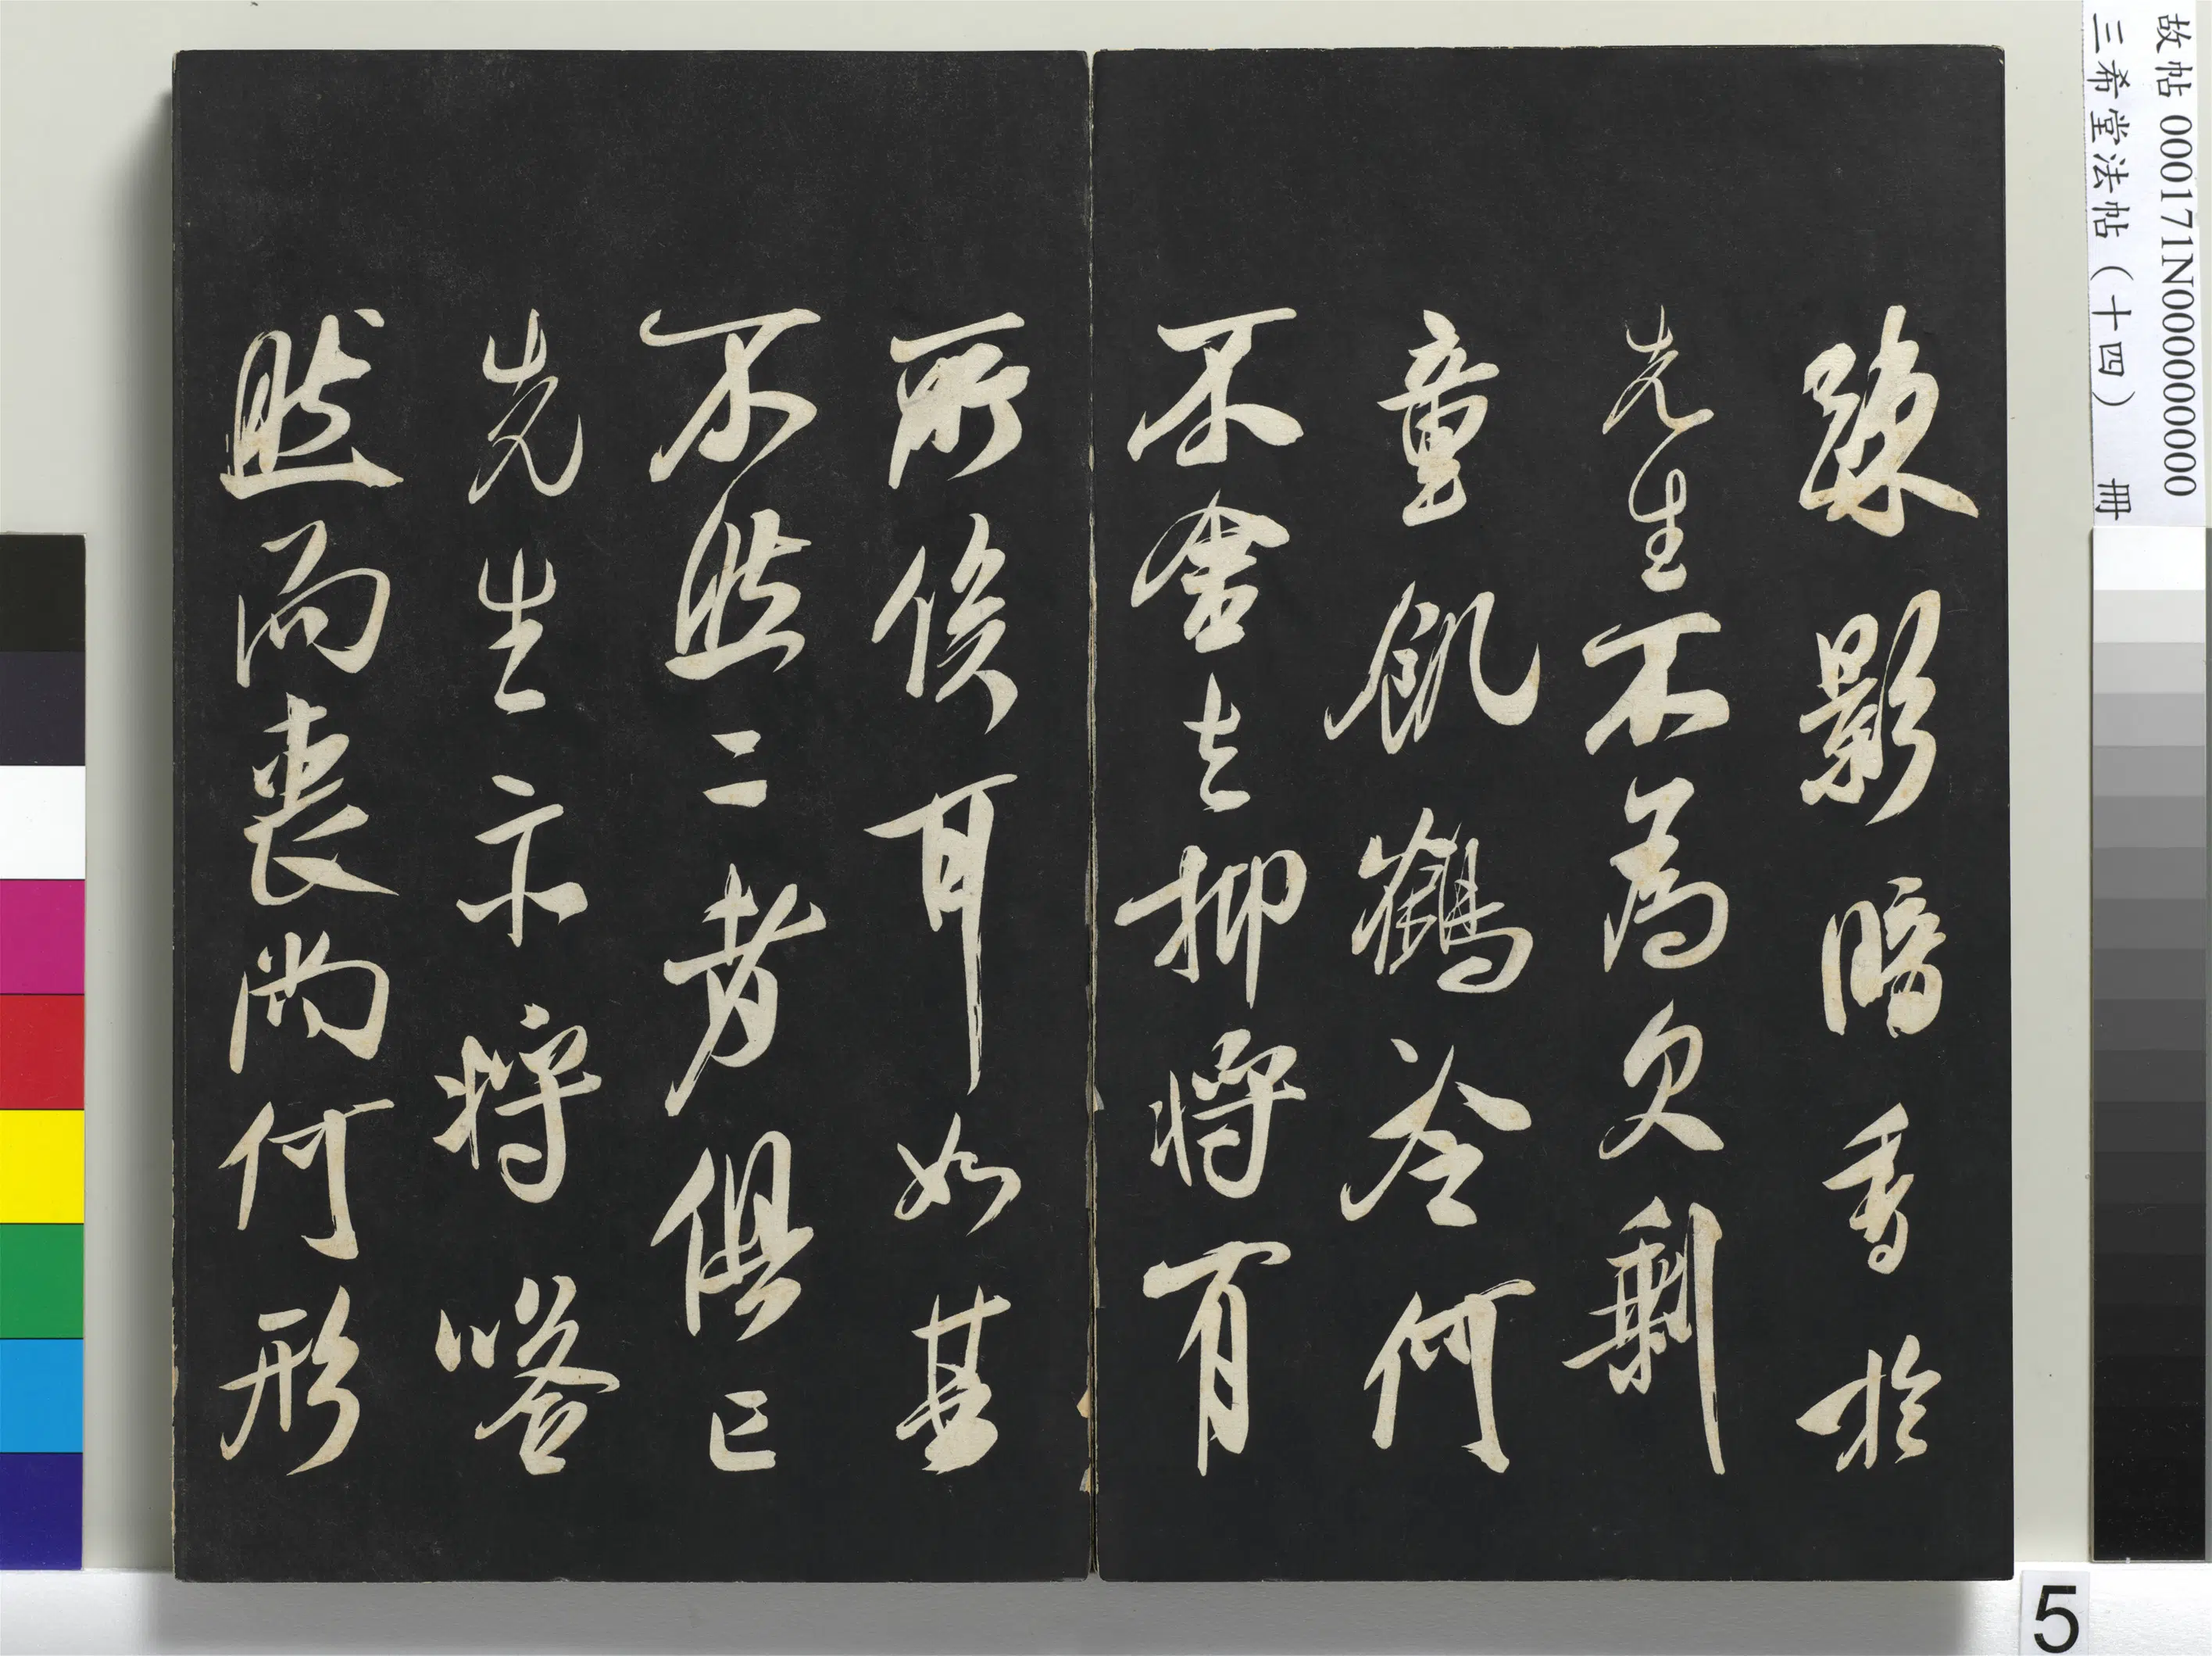 故帖 000171N000000000
三希堂法帖（十四） 冊
疎影暗香於
先生不為欠剩
童飢鶴冷何
不舍去抑將有
所俟耶如其
不然二者俱亡
先生亦將嗒
然而喪尚何形
5